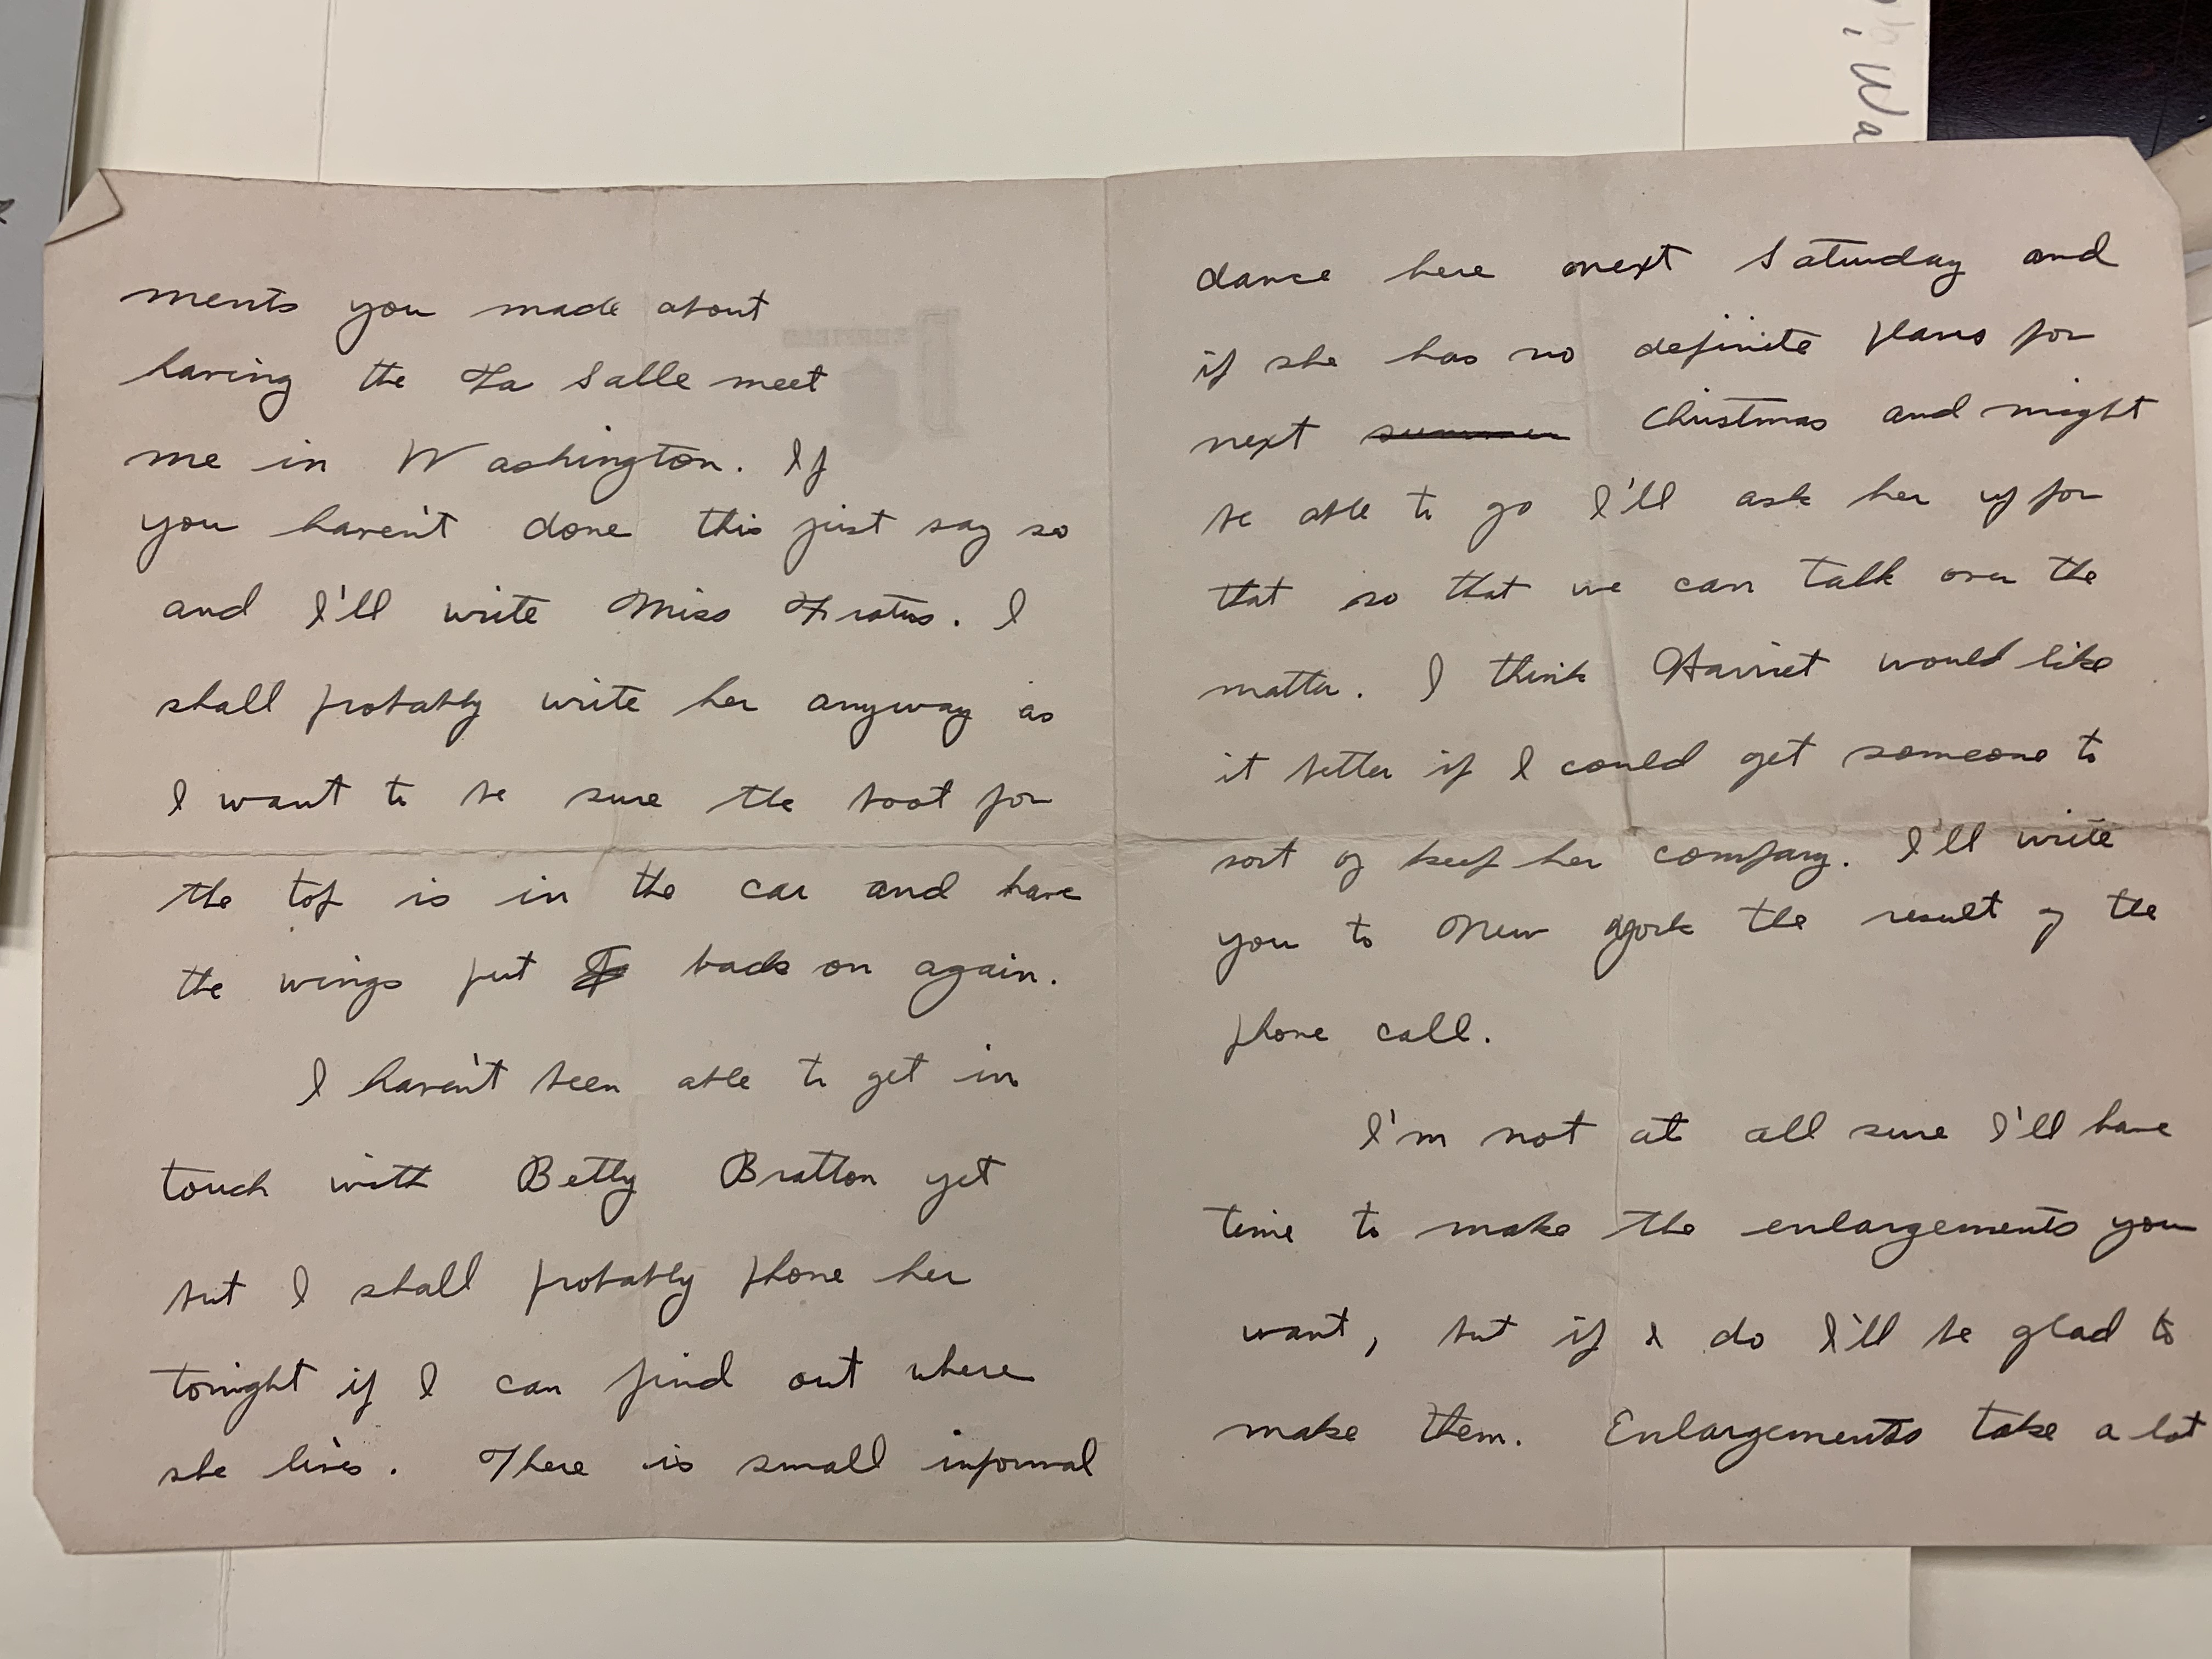 ments you made about
having the La Salle meet
me in Washington. If
you haven't done this just say so
and I'll write Miss Hsatus. I
shall probably write her anyway as
I want to be sure the boot for
the top is in the car and have
the wings put back on again.
I haven't been able to get in
touch with Betty Bratton yet
but I shall probably phone her
tonight if I can find out where
she lives. There is small informal
dance here next Saturday and
if she has no definite plans for
next summer Christmas and might
be able to go I'll ask her up for
that so that we can talk over the
matter. I think Harriet would like
it better if I could get someone to
sort of keep her company. I'll write
you to New York the result of the
phone call.
I'm not at all sure I'll have
time to make the enlargements you
want, but if I do I'll be glad to
make them. Enlargements take a lot
: Wa